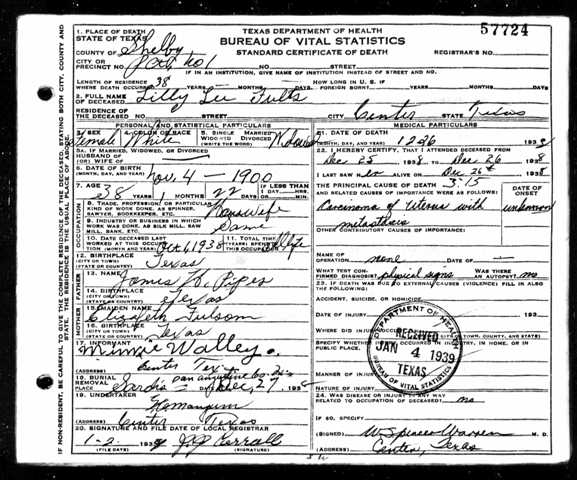 57724
TEXAS DEPARTMENT OF HEALTH
BUREAU OF VITAL STATISTICS
STANDARD CERTIFICATE OF DEATH
1. PLACE OF DEATH
STATE OF TEXAS
COUNTY OF Shelby
REGISTRAR'S NO.
CITY OR PRECINCT NO. No 1
NO. STREET
IF IN AN INSTITUTION, GIVE NAME OF INSTITUTION INSTEAD OF STREET AND NO.
LENGTH OF RESIDENCE WHERE DEATH OCCURRED 38 YEARS MONTHS DAYS. HOW LONG IN U. S. IF FOREIGN BORN? YEARS MONTHS DAYS
2. FULL NAME OF DECEASED Lilly Lee Fults
RESIDENCE OF THE DECEASED NO. STREET CITY Center STATE Texas
PERSONAL AND STATISTICAL PARTICULARS
3. SEX Female
4. COLOR OR RACE White
5. SINGLE MARRIED WIDOWED DIVORCED (WRITE THE WORD)
5A. IF MARRIED, WIDOWED, OR DIVORCED
HUSBAND OF
(OR) WIFE OF
6. DATE OF BIRTH (MONTH, DAY, AND YEAR) Nov. 4 - 1900
7. AGE 38 YEARS 1 MONTHS 22 DAYS IF LESS THAN 1 DAY, HRS. MIN.
OCCUPATION
8. TRADE, PROFESSION, OR PARTICULAR KIND OF WORK DONE, AS SPINNER, SAWYER, BOOKKEEPER, ETC. Housewife
9. INDUSTRY OR BUSINESS IN WHICH WORK WAS DONE, AS SILK MILL, SAW MILL, BANK, ETC. Same
10. DATE DECEASED LAST WORKED AT THIS OCCUPATION (MONTH AND YEAR) Oct 1, 1938
11. TOTAL TIME (YEARS) SPENT IN THIS OCCUPATION Life
12. BIRTHPLACE (CITY OR TOWN) (STATE OR COUNTRY) Texas
FATHER
13. NAME James W. Pipes
14. BIRTHPLACE (CITY OR TOWN) (STATE OR COUNTRY) Texas
MOTHER
15. MAIDEN NAME Elizabeth Fulsom
16. BIRTHPLACE (CITY OR TOWN) (STATE OR COUNTRY) Texas
17. INFORMANT Minnie Walley.
(ADDRESS) Center Tex
18. BURIAL REMOVAL
PLACE Sardis San augustine Co. DATE Dec, 27, 1938
19. UNDERTAKER
(ADDRESS) Center Texas
20. SIGNATURE AND FILE DATE OF LOCAL REGISTRAR
1-2- 1939
(FILE DATE) (SIGNATURE)
MEDICAL PARTICULARS
21. DATE OF DEATH (MONTH, DAY, AND YEAR) 12 26 1938
22. I HEREBY CERTIFY, THAT I ATTENDED DECEASED FROM
Dec 25 1938, TO Dec 26 1938
I LAST SAW ALIVE ON Dec 26th 1938
THE PRINCIPAL CAUSE OF DEATH AND RELATED CAUSES OF IMPORTANCE WERE AS FOLLOWS: DATE OF ONSET
Carcinoma of Uterus with unknown
metasthesis
OTHER CONTRIBUTING CAUSES OF IMPORTANCE:
NAME OF OPERATION none DATE OF —
WHAT TEST CONFIRMED DIAGNOSIS? physical signs WAS THERE AN AUTOPSY? no
23. IF DEATH WAS DUE TO EXTERNAL CAUSES (VIOLENCE) FILL IN ALSO THE FOLLOWING:
ACCIDENT, SUICIDE, OR HOMICIDE
DATE OF INJURY
WHERE DID INJURY OCCUR (CITY OR TOWN, COUNTY, AND STATE)
MANNER OF INJURY
NATURE OF INJURY
24. WAS DISEASE OR INJURY IN ANY WAY RELATED TO OCCUPATION OF DECEASED? no
IF SO, SPECIFY
(SIGNED) W Spencer Warren M. D.
(ADDRESS) Center, Texas
DEPARTMENT OF HEALTH
RECEIVED
JAN 4 1939
TEXAS
BUREAU OF VITAL STATISTICS